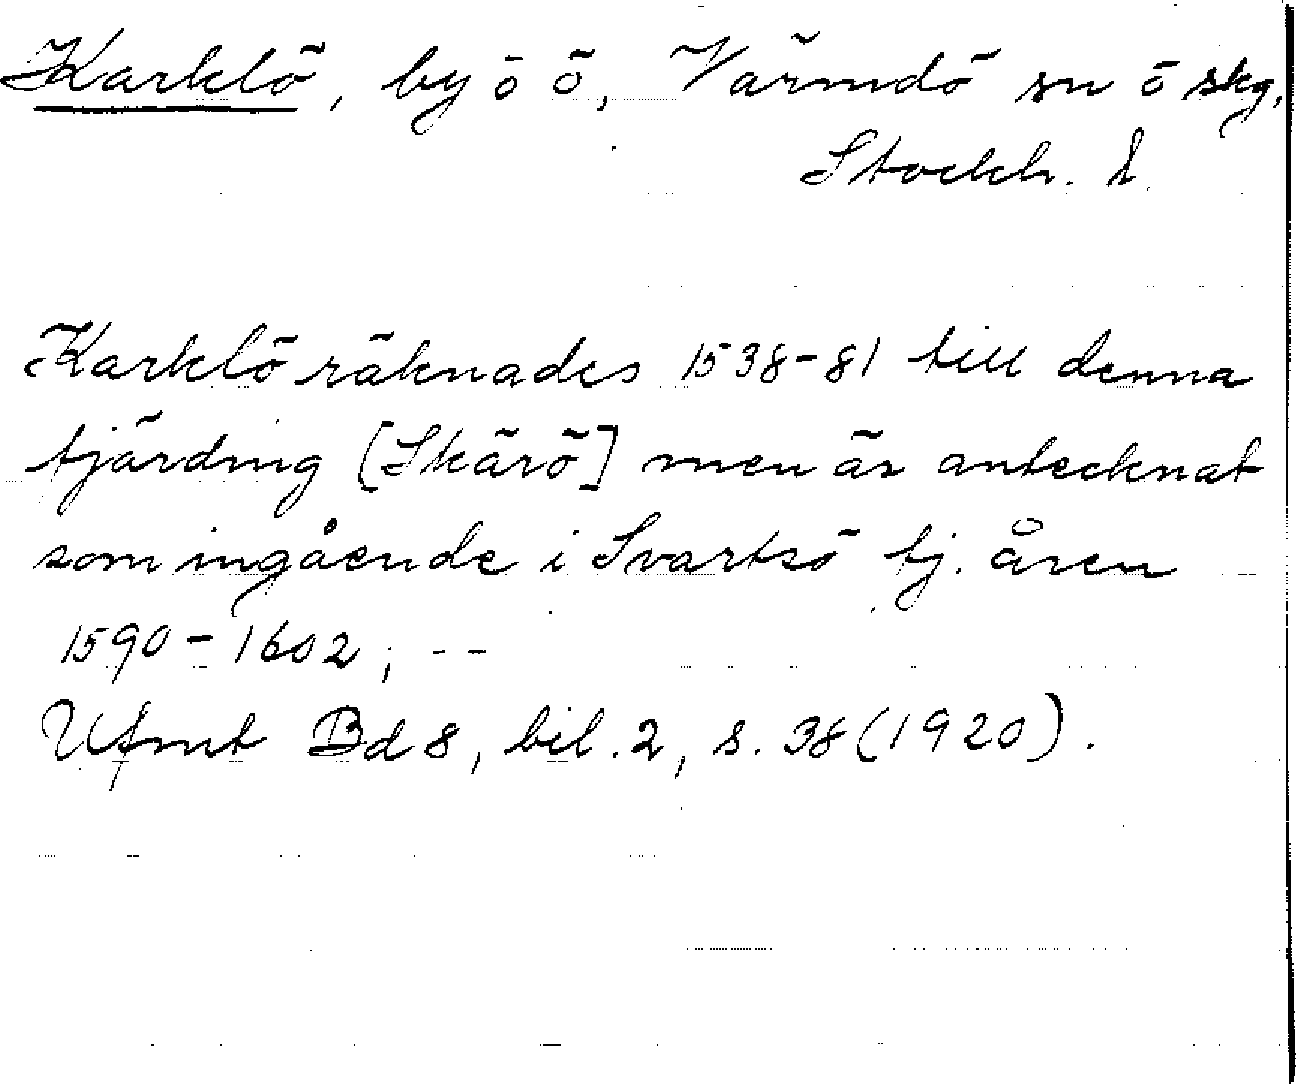 Karklö, by o ö, Värmdö sn o skg,
Stockh. l.
Karklö räknades 1538-81 till denna
fjärding [Skärö] men är antecknat
som ingående i Svartsö fj. åren
1590-1602; --
Ufmt Bd 8, bil. 2, s. 38 (1920).